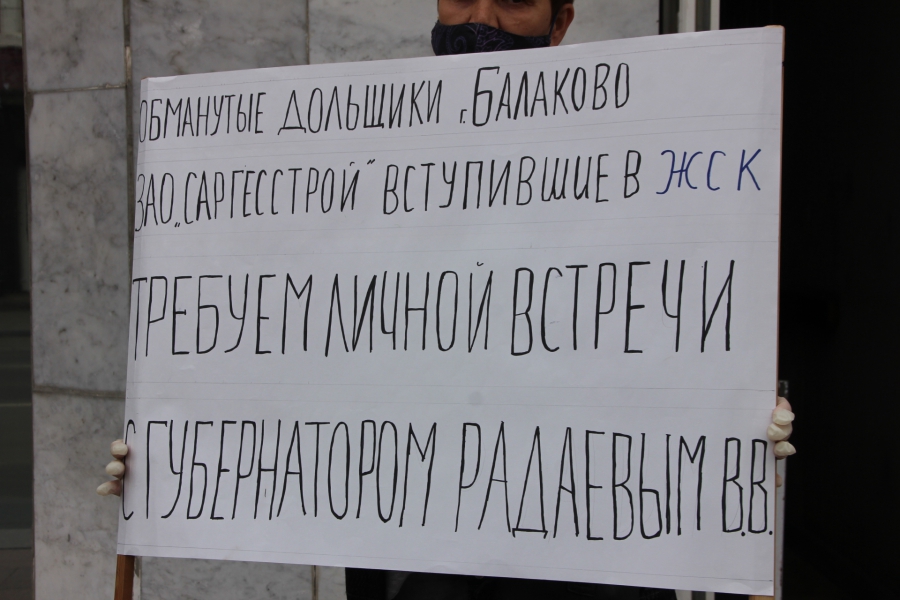 ОБМАНУТЫЕ ДОЛЬЩИКИ г. БАЛАКОВО
ЗАО „САРГЕССТРОЙ" ВСТУПИВШИЕ В ЖСК
ТРЕБУЕМ ЛИЧНОЙ ВСТРЕЧИ
С ГУБЕРНАТОРОМ РАДАЕВЫМ В.В.